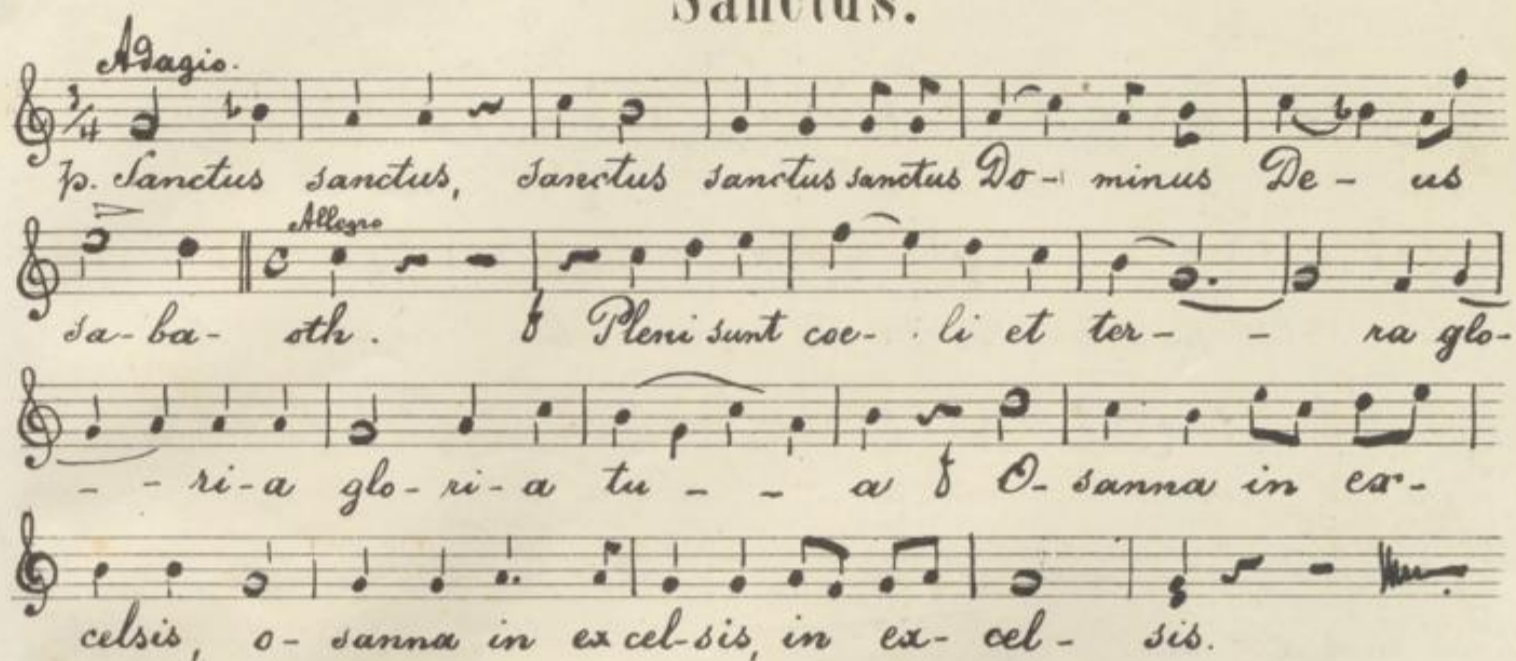 Sanctus.
Adagio.
3/4
p. Sanctus sanctus, sanctus sanctus sanctus Do- minus De- us
Allegro
sa-ba- oth. f Pleni sunt coe- li et ter- - ra glo-
- - ri-a glo-ri-a tu - - a f O- sanna in ex-
celsis, o- sanna in excel-sis, in ex- cel- sis.